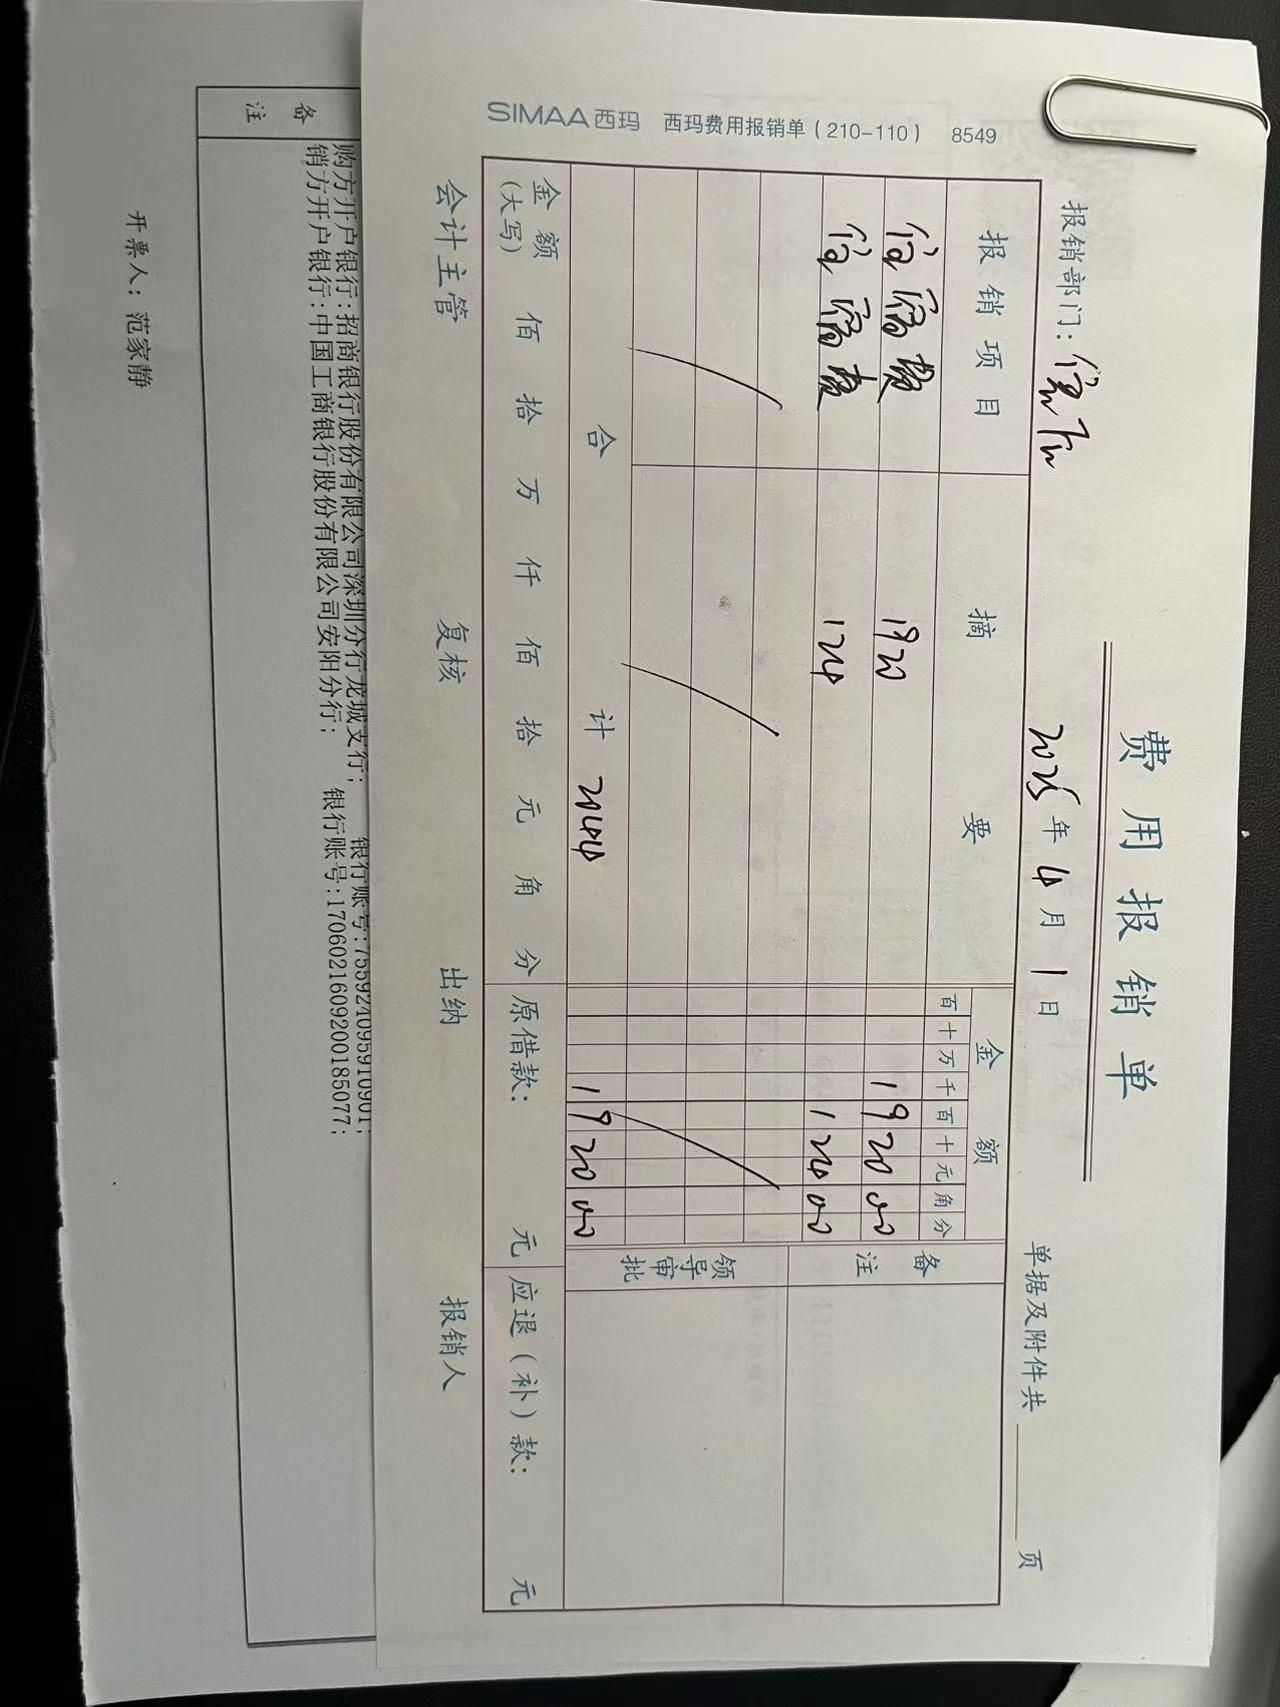 费用报销单
报销部门：
2025年4月1日
单据及附件共 页
报销项目 摘要 金额 备注
百十万千百十元角分
住宿费 1920 1920 00
住宿费 124 124 00
领导审批
合计 2044 1920 00
金额(大写) 佰 拾 万 仟 佰 拾 元 角 分 原借款： 元 应退（补）款： 元
会计主管 复核 出纳 报销人
SIMAA西玛 西玛费用报销单（210-110） 8549
备注
购方开户银行:招商银行股份有限公司深圳分行龙城支行; 银行账号:755924095910901;
销方开户银行:中国工商银行股份有限公司安阳分行; 银行账号:1706021609200185077;
开票人：范家静